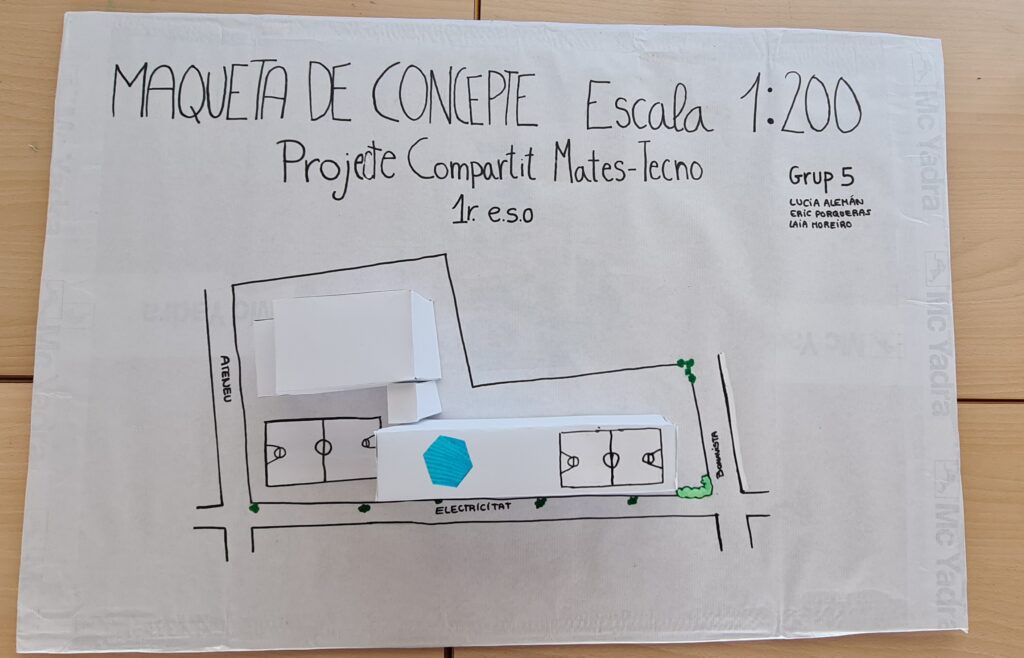 MAQUETA DE CONCEPTE Escala 1:200
Projecte Compartit Mates-Tecno
1r. e.s.o
Grup 5
LUCÍA ALEMÁN
ERIC PORQUERAS
LAIA MOREIRO
ATENEU
BONAVISTA
ELECTRICITAT
Mc Yadra
Mc Yadra
Mc Yadra